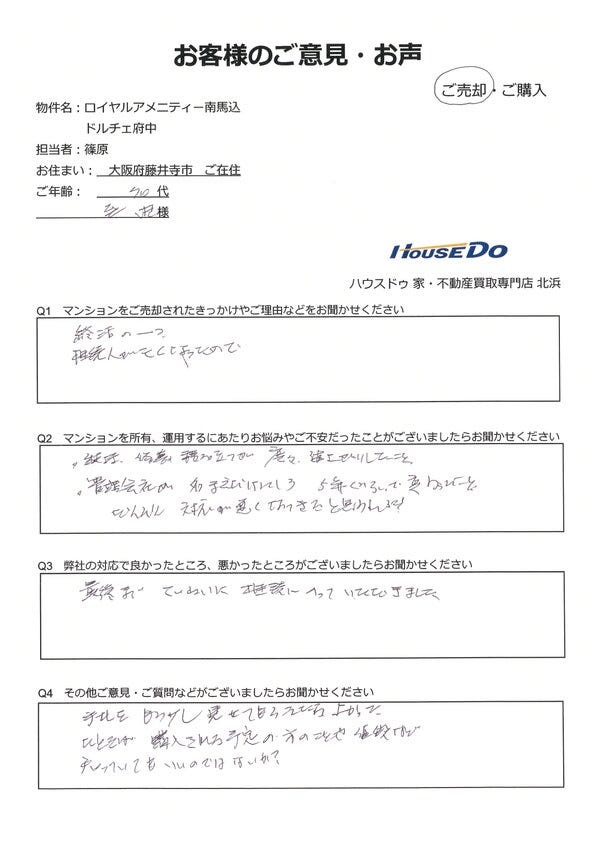 お客様のご意見・お声
ご売却・ご購入
物件名：ロイヤルアメニティー南馬込
ドルチェ府中
担当者：篠原
お住まい：　大阪府藤井寺市　ご在住
ご年齢：　70 代
様
HOUSE DO
ハウスドゥ 家・不動産買取専門店 北浜
Q1　マンションをご売却されたきっかけやご理由などをお聞かせください
終活の一つ
相続人が亡くなったので
Q2　マンションを所有、運用するにあたりお悩みやご不安だったことがございましたらお聞かせください
積み立てが 度々 値上がりしたこと
管理会社が 5年くらいで変わったこと
だんだん 対応が悪くなってきたと思われる
Q3　弊社の対応で良かったところ、悪かったところがございましたらお聞かせください
最後まで ていねいに 相談にのっていただきました
Q4　その他ご意見・ご質問などがございましたらお聞かせください
もう少し見せてもらえたら よかった
たとえば 購入される予定の方のことや 値段など
知っていてもいいのではないか？